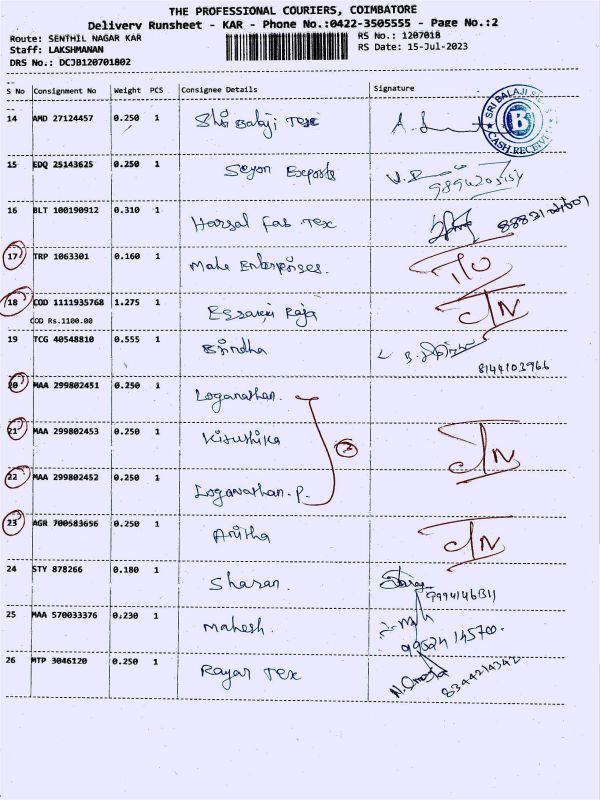 THE PROFESSIONAL COURIERS, COIMBATORE
Delivery Runsheet - KAR - Phone No.:0422-3505555 - Page No.:2
Route: SENTHIL NAGAR KAR RS No.: 1207018
Staff: LAKSHMANAN RS Date: 15-Jul-2023
DRS No.: DCJB120701802
S No Consignment No Weight PCS Consignee Details Signature
14 AMD 27124457 0.250 1 Shri Balaji Tex
SRI BALAJI
B
CASH RECEIVE
15 EDQ 25143625 0.250 1 Seyon Exports
16 BLT 100190912 0.310 1 Harsal Fab Tex
17 TRP 1063301 0.160 1 Maha Enterprises.
18 COD 1111935768 1.275 1 Raja
COD Rs.1100.00
19 TCG 40548810 0.555 1 Brindha
8144103966
20 MAA 299802451 0.250 1 Loganathan.
21 MAA 299802453 0.250 1
22 MAA 299802452 0.250 1 Loganathan.P.
23 AGR 700583656 0.250 1 Anitha
24 STY 878266 0.180 1 Sharan.
25 MAA 570033376 0.230 1 Mahesh.
26 MTP 3046120 0.250 1 Rayar Tex
8344214342